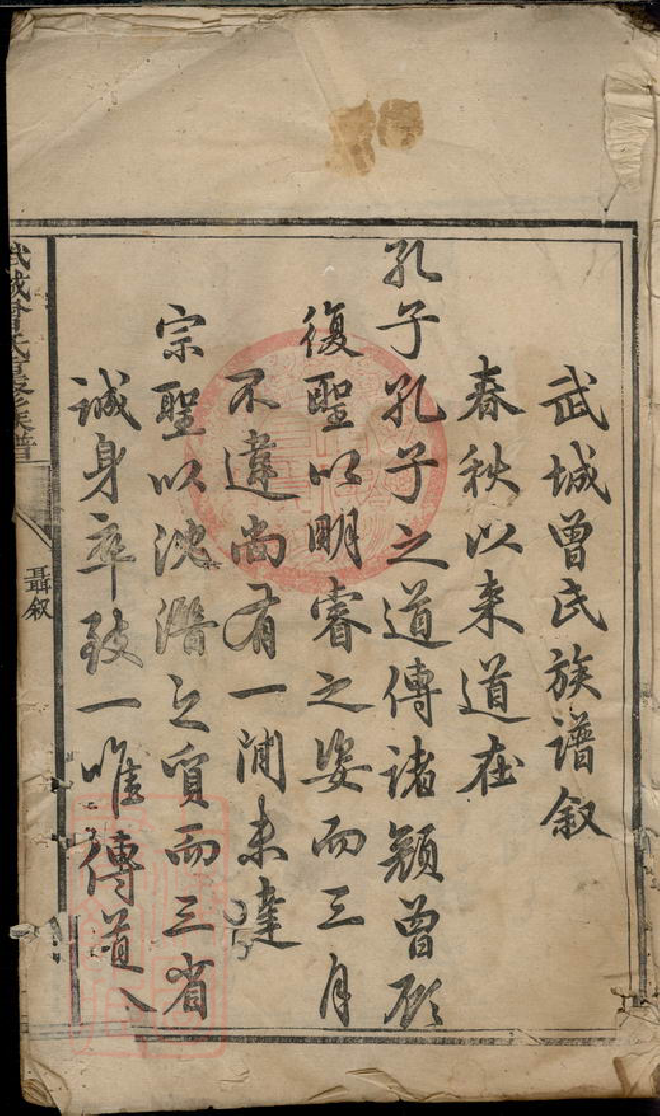 武城曾氏族谱叙
春秋以来道在
孔子孔子之道傳诸颜曾顾
復聖以明睿之姿而三月
不違尚有一间未達
宗聖以沈潛之質而三省
誠身卒致一唯傳道八
武城曾氏重修族譜
聶叙